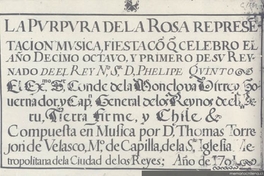 LA PVRPVRA DE LA ROSA REPRESE-
TACION MVSICA, FIESTA CÕ Q̃ CELEBRO EL
AÑO DECIMO OCTAVO, Y PRIMERO DE SV REY-
NADO DEEL REY Nº. Sº. D. PHELIPE QVINTO
El Exmo. Sº. Conde de la Monclova Virrey Go
uernador, y Capn. General de los Reynos de el Pe
ru, Tierra firme, y Chile &
Compuesta en Musica por D. Thomas Torre
jon de Velasco, Mº. de Capilla, de la Sta. Iglesia Me
tropolitana de la Ciudad de los Reyes: Año de 1701